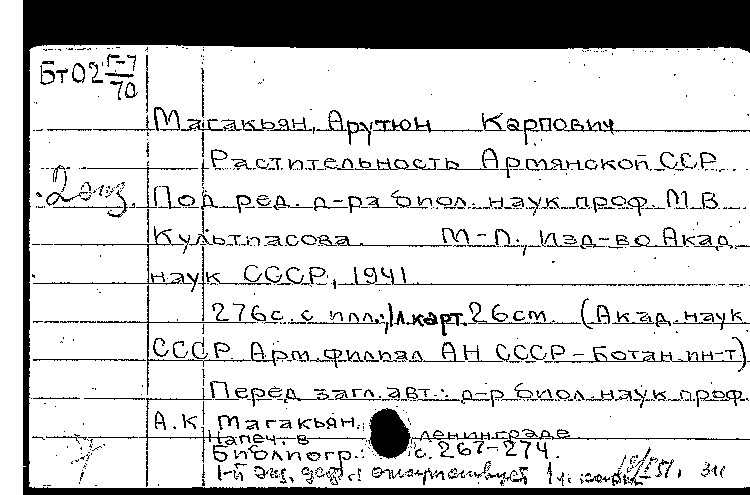 Бт02 Г-7/70
Магакьян, Арутюн Карпович
Растительность Армянской ССР
2 экз. Под ред. д-ра биол. наук проф. М.В.
Культиасова. М-Л., Изд-во Акад.
наук СССР, 1941.
276с. с илл.; 1 л. карт. 26см. (Акад. наук
СССР. Арм. филиал АН СССР - Ботан. ин-т)
Перед загл. авт.: д-р биол. наук проф.
А.К. Магакьян.
Напеч. в Ленинграде
Библиогр.: с. 267-274.
1-й экз. деф.: отсутствует 1 л. карты